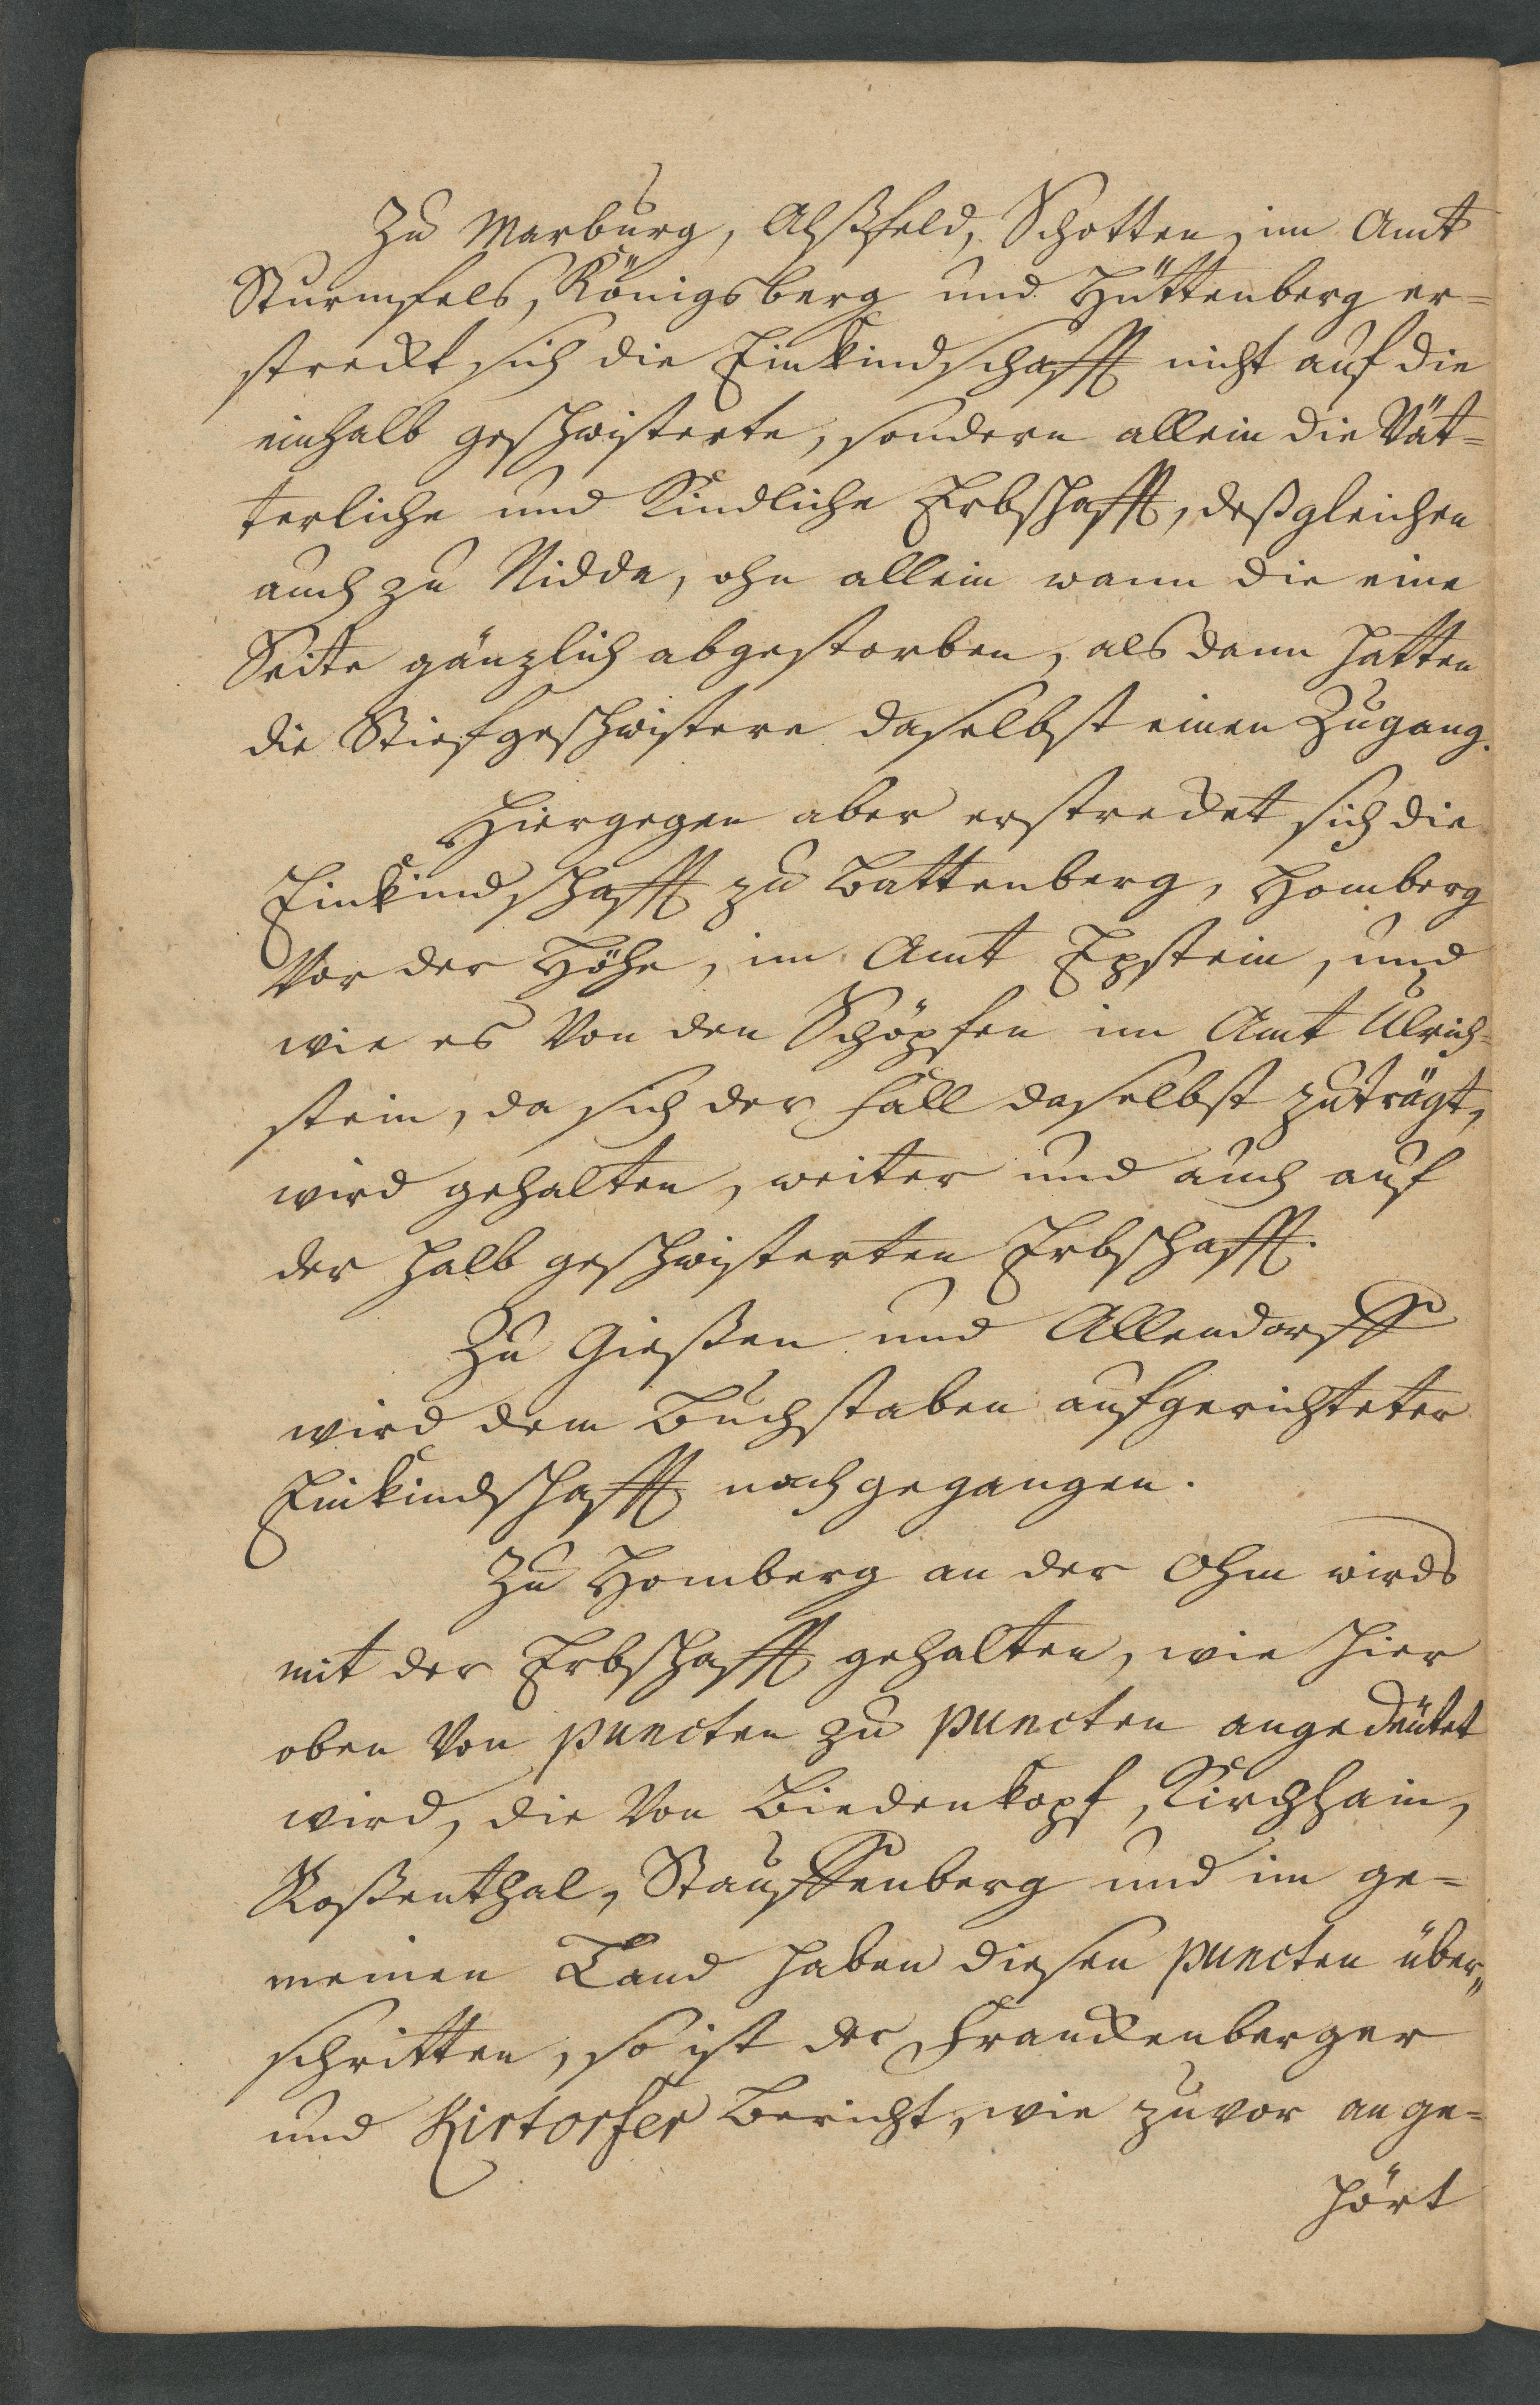 Zu Marburg, Alßfeld, Schotten, im Amt
Sturmfels, Königsberg und Hüttenberg er=
streckt sich die Einkindschafft nicht auf die
einhalb geschwisterte, sondern allein die Vät=
terliche und Kindliche Erbschafft, deßgleichen
auch zu Nidda, ohn allein wann die eine
Seite gänzlich abgestorben, als dann hatten
die Stiefgeschwistere daselbst einen Zugang.
Hiergegen aber erstrecket sich die
Einkindschafft zu Battenberg, Homberg
Vor der Höhe, im Amt Epstein, und
wie es Von den Schöpfen im Amt Ulrich=
stein, da sich der Fall daselbst zuträgt,
wird gehalten, weiter und auch auf
der halb geschwisterten Erbschafft.
Zu Gießen und Allendorff
wird dem Buchstaben aufgerichteter
Einkindschafft nachgegangen.
Zu Homberg an der Ohm wirds
mit der Erbschafft gehalten, wie hier
oben Von puncten zu puncten angedeutet
wird, die Von Biedenkopf, Kirchhain,
Roßenthal, Stauffenberg und im ge=
meinen Land haben diesen puncten über„
schritten, so ist der Franckenberger
und Kirtorfer Bericht, wie zuvor ange=
hört